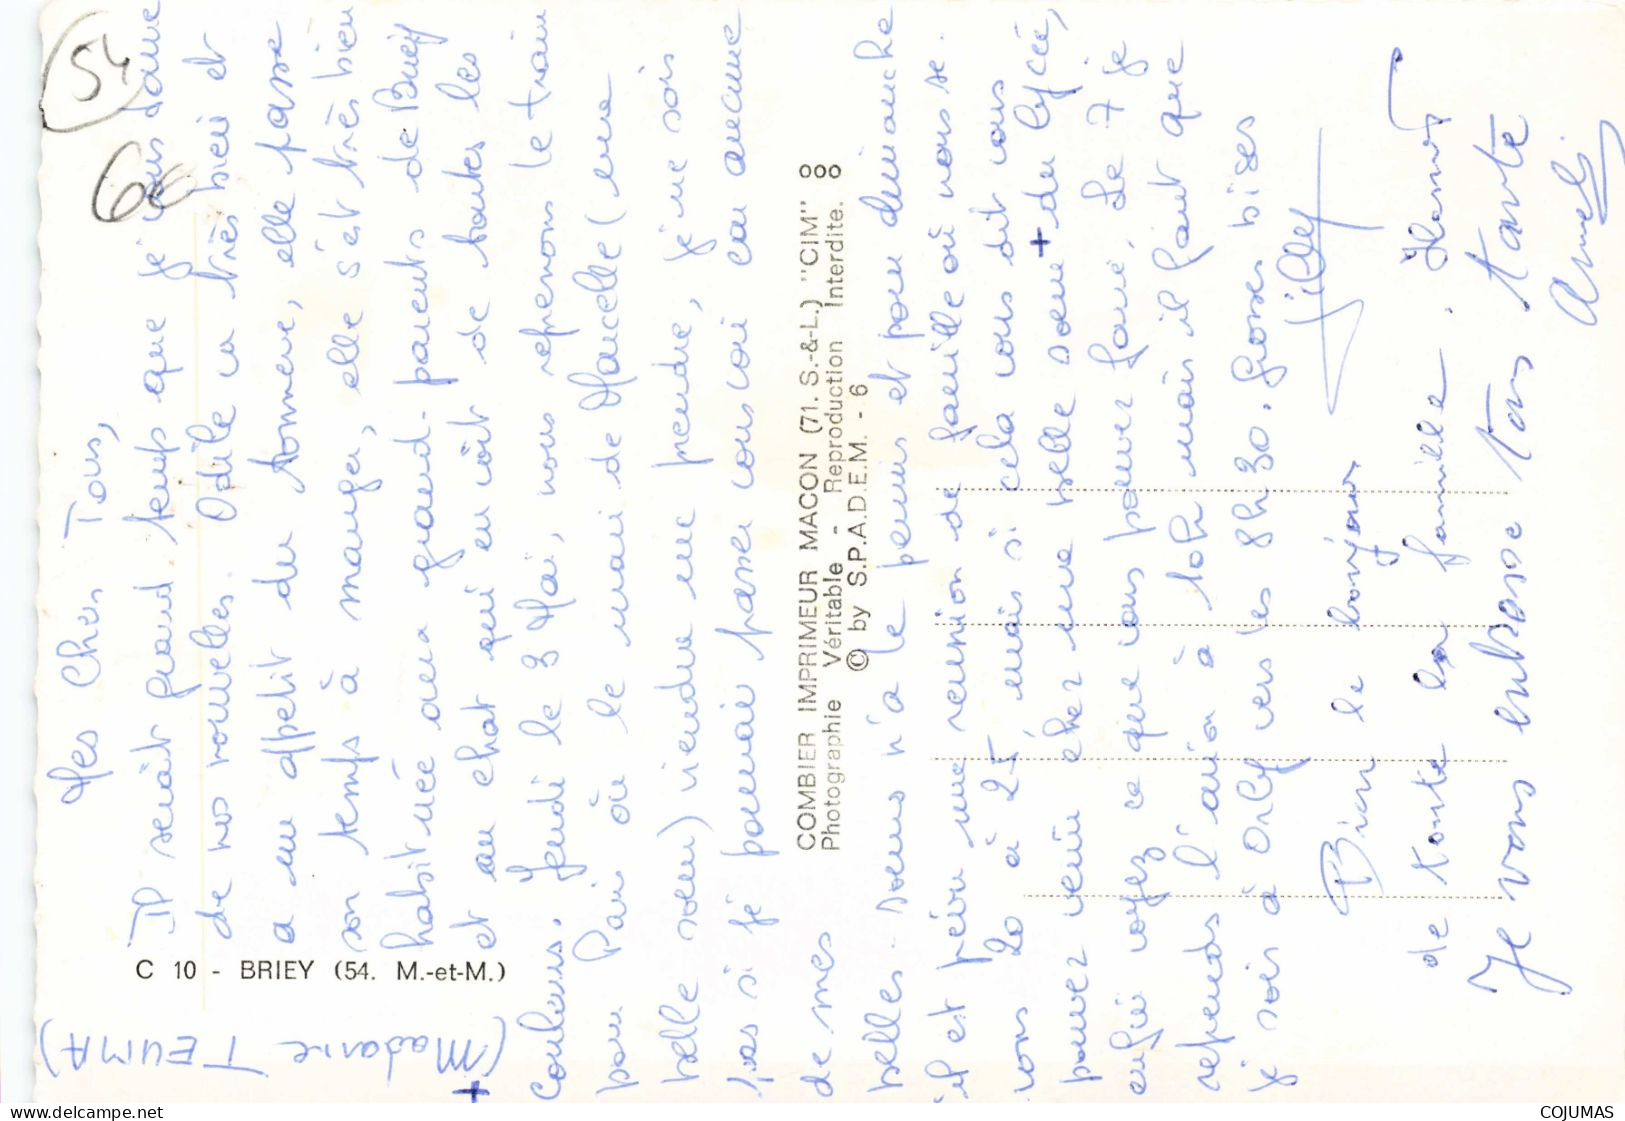 54
6€
Mes Chers Tous,
Il serait grand temps que je vous donne
de nos nouvelles. Odile va très bien et
a un appetit du tonnerre, elle passe
son temps à manger, elle s'est très bien
habituée aux grand-parents de Briey
et au chat qui en voit de toutes les
couleurs. Jeudi le 3 Mai, nous reprenons le train
pour Paris où le mari de Marcelle (une
belle soeur) viendra me prendre, je ne sais
pas si je pourrai passer vous voir car aucune
de mes
belles-soeurs n'a le permis et pour dimanche
il est prévu une reunion de famille où nous se
rons 20 à 25 mais si cela vous dit vous
pouvez venir chez une belle soeur + du lycée,
enfin voyez ce que vous pouvez faire. Le 7 je
reprends l'avion à 10h mais il faut que
je sois à Orly vers les 8h30. Grosses bises
Gilley
Bien le bonjour
de toute la famille.
Je vous embrasse tous tante
C 10 - BRIEY (54. M.-et-M.)
+ (Madame TEUMA)
COMBIER IMPRIMEUR MACON (71. S.-&-L.) "CIM"
Photographie Véritable - Reproduction Interdite.
© by S.P.A.D.E.M. - 6
delcampe.net
COJUMAS